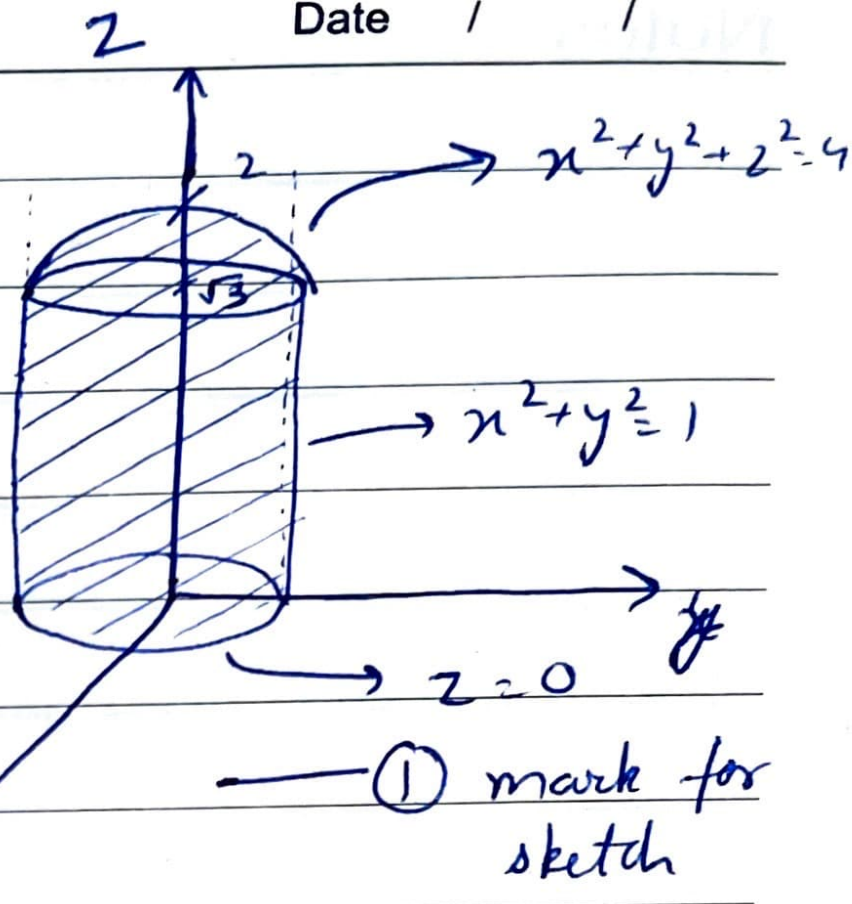 Date / /
Z
2
x²+y²+z²=4
√3
x²+y²=1
y
z=0
① mark for
sketch